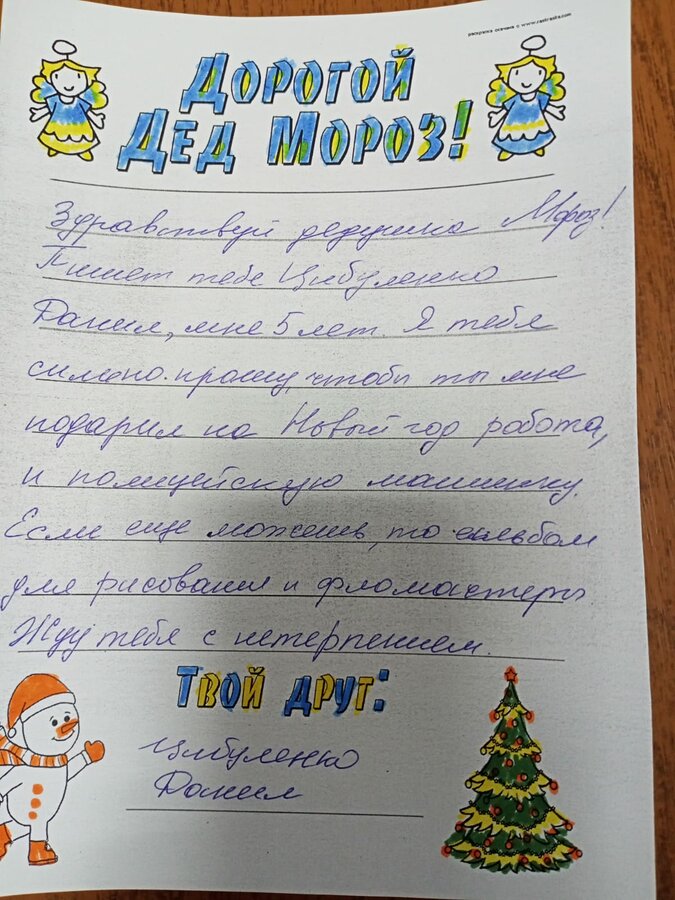 раскраска скачана с www.raskraska.com
Дорогой
Дед Мороз!
Здравствуй дедушка Мороз!
Пишет тебе Цибуленко
Данил, мне 5 лет. Я тебя
сильно прошу, чтобы ты мне
подарил на Новый год робота,
и полицейскую машинку.
Если еще можешь, то альбом
для рисования и фломастеры
Жду тебя с нетерпением.
Твой друг:
Цибуленко
Данил